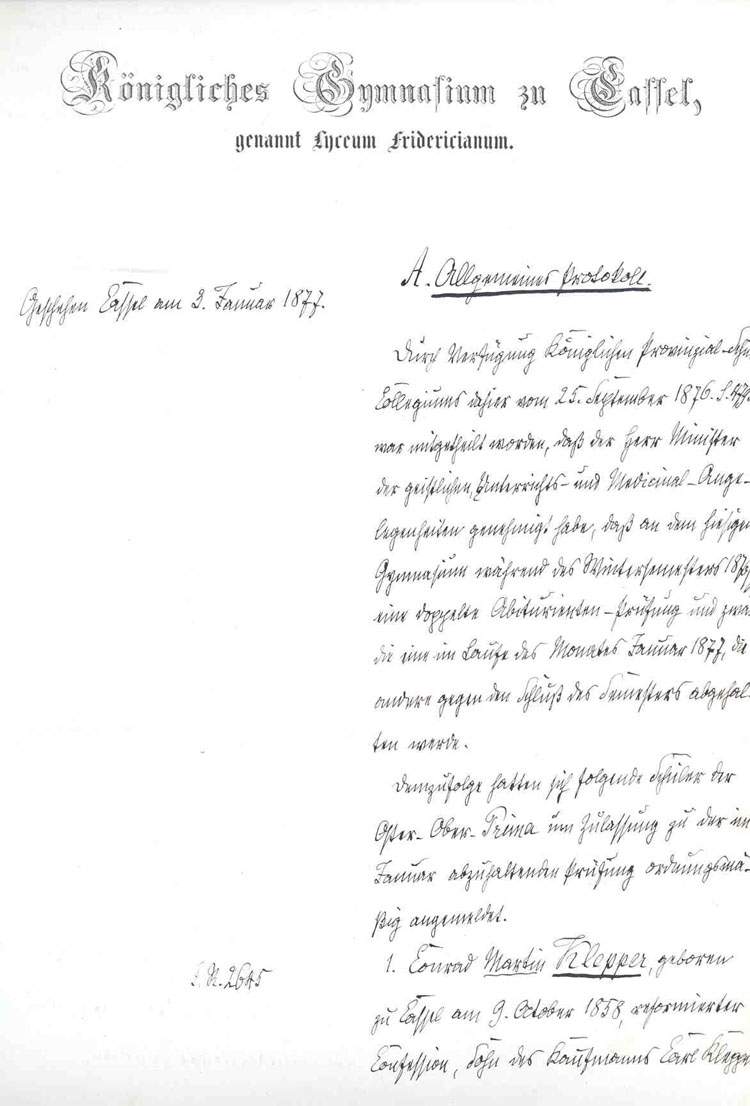 Königliches Gymnasium zu Cassel,
genannt Lyceum Fridericianum.
Geschehen Cassel am 3. Januar 1877.
A. Allgemeines Protokoll.
Durch Verfügung Königlichen Provinzial-Schul
Collegiums dahier vom 25. September 1876. S.
war mitgetheilt worden, daß der Herr Minister
der geistlichen, Unterrichts- und Medicinal-Ange-
legenheiten genehmigt habe, daß an dem hiesigen
Gymnasium während des Wintersemesters 1876/
eine doppelte Abiturienten-Prüfung und zwar
die eine im Laufe des Monates Januar 1877, die
andere gegen den Schluß des Semesters abgehal-
ten werde.
Demzufolge hatten sich folgende Schüler der
Oster-Ober-Prima um Zulassung zu der im
Januar abzuhaltenden Prüfung ordnungsmä-
ßig angemeldet.
1. Conrad Martin Klepper, geboren
S.N. 2645
zu Cassel am 9. October 1858, reformierter
Confession, Sohn des Kaufmanns Carl Klepper